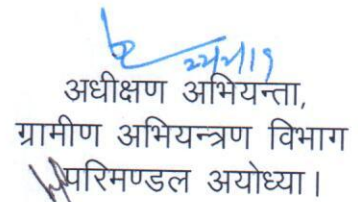 22/2/19
अधीक्षण अभियन्ता,
ग्रामीण अभियन्त्रण विभाग
परिमण्डल अयोध्या।